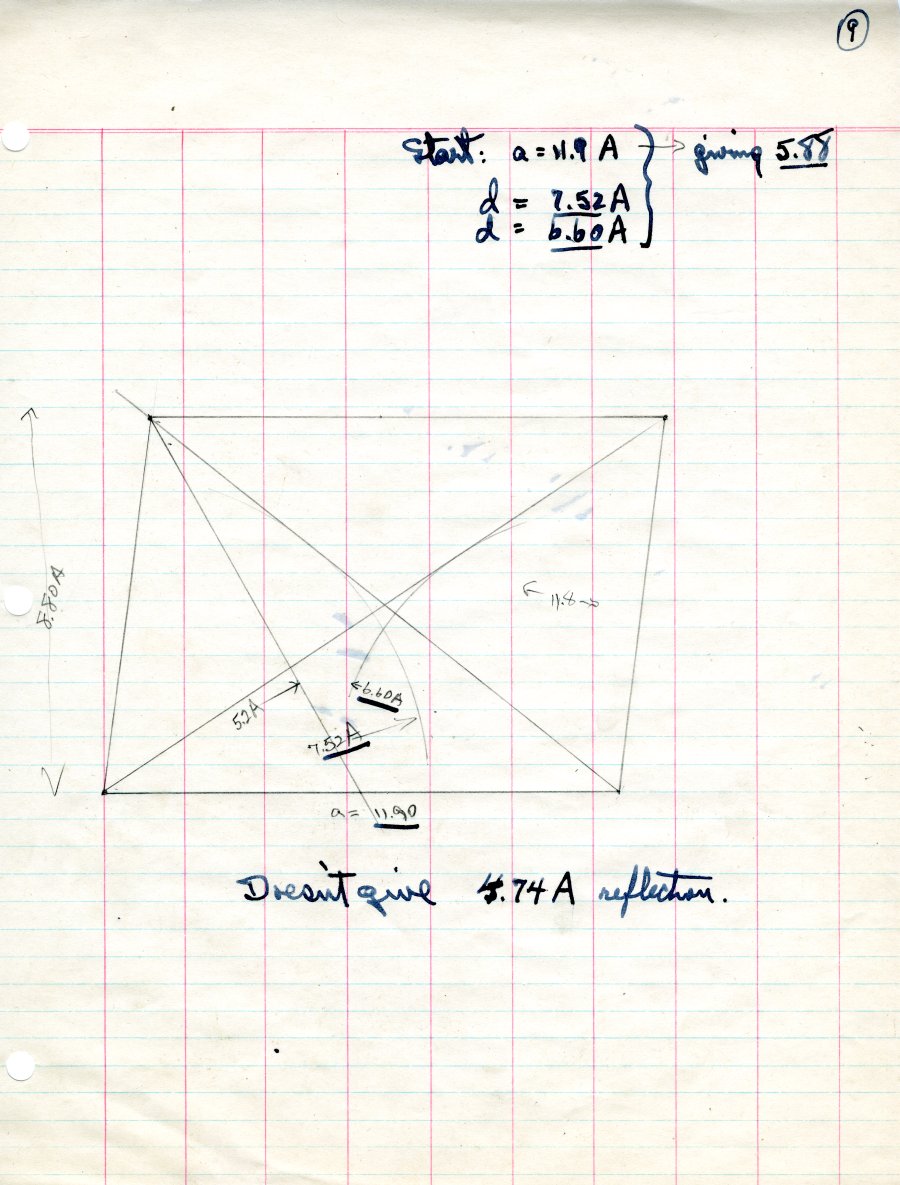 9
Start: a = 11.9 A → giving 5.88
d = 7.52 A
d = 6.60 A
8.80A
← 11.8 →
←6.60A
5.2A
7.52A
a = 11.90
Doesn't give 4.74 A reflection.